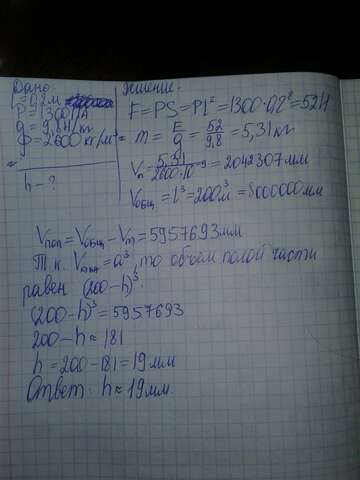 Дано:
l=0,2м
P=1300ПА
g=9,8Н/кг
ϕ=2600кг/м³
h-?
Решение:
F=PS=Pl²=1300·0,2²=52Н
m=F/g=52/9,8=5,31кг
Vп=5,31/2600·10⁻⁹=2042307мм
Vобщ=l³=200м³=8000000мм
Vпол=Vобщ-Vт=5957693мм
Т.к. a³, то объем полой части
равен (200-h)³.
(200-h)³=5957693
200-h≈181
h=200-181=19мм
Ответ: h≈19мм.